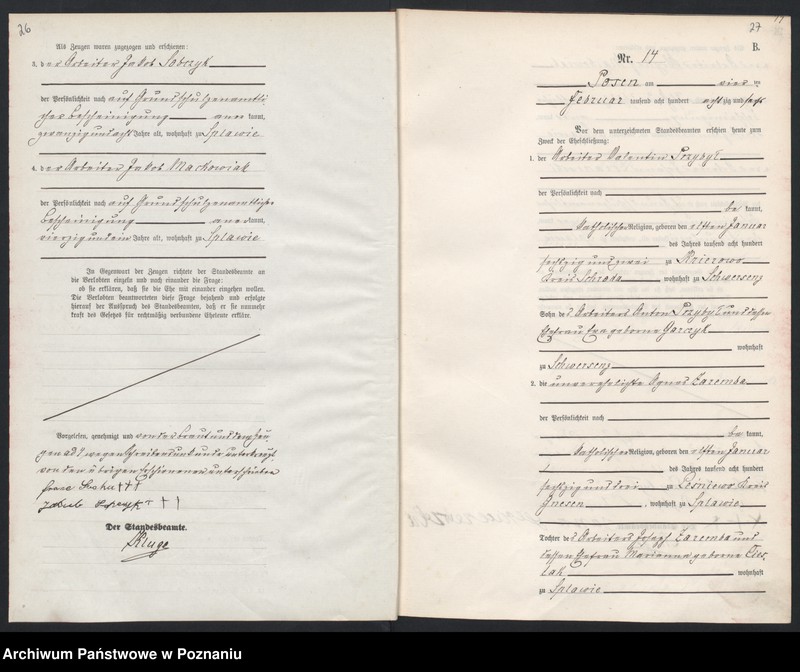 26
Als Zeugen waren zugezogen und erschienen:
3. der Arbeiter Jakob Sobczyk
der Persönlichkeit nach auf Grund schulzenamtli
ches Bescheinigung aner kannt,
zwanzigundacht Jahre alt, wohnhaft zu Splawie
4. der Arbeiter Jakob Machowiak
der Persönlichkeit nach auf Grund schulzenamtlicher
Bescheinigung aner kannt,
vierzigundein Jahre alt, wohnhaft zu Splawie
In Gegenwart der Zeugen richtete der Standesbeamte an
die Verlobten einzeln und nach einander die Frage:
ob sie erklären, daß sie die Ehe mit einander eingehen wollen.
Die Verlobten beantworteten diese Frage bejahend und erfolgte
hierauf der Ausspruch des Standesbeamten, daß er sie nunmehr
kraft des Gesetzes für rechtmäßig verbundene Eheleute erkläre.
Vorgelesen, genehmigt und von der Braut und dem Zeu
gen ad 1 wegen Schreibensunkunde unterkreuzt,
von den übrigen Erschienenen unterschrieben
+++
Jakub +++
Der Standesbeamte.
Kluge
27
B.
Nr. 14
Posen am vier ten
Februar tausend acht hundert acht zig und sechs
Vor dem unterzeichneten Standesbeamten erschien heute zum
Zweck der Eheschließung:
1. der Arbeiter Valentin Przybyl
der Persönlichkeit nach
be kannt,
katholischer Religion, geboren den elften Januar
des Jahres tausend acht hundert
sechzig und zwei zu Krierowo
Kreis Schroda wohnhaft zu Schwersenz
Sohn des Arbeiters Anton Przybyl und dessen
Ehefrau Eva geborene Garczyk
wohnhaft
zu Schwersenz
2. die unverehelichte Agnes Zaremba
der Persönlichkeit nach
be kannt,
katholischer Religion, geboren den elften Januar
des Jahres tausend acht hundert
sechzig und drei zu Lesniewo Kreis
Gnesen, wohnhaft zu Splawie
Tochter des Arbeiters Joseph Zaremba und
dessen Ehefrau Marianna geborene Cies
lak wohnhaft
zu Splawie
Archiwum Państwowe w Poznaniu